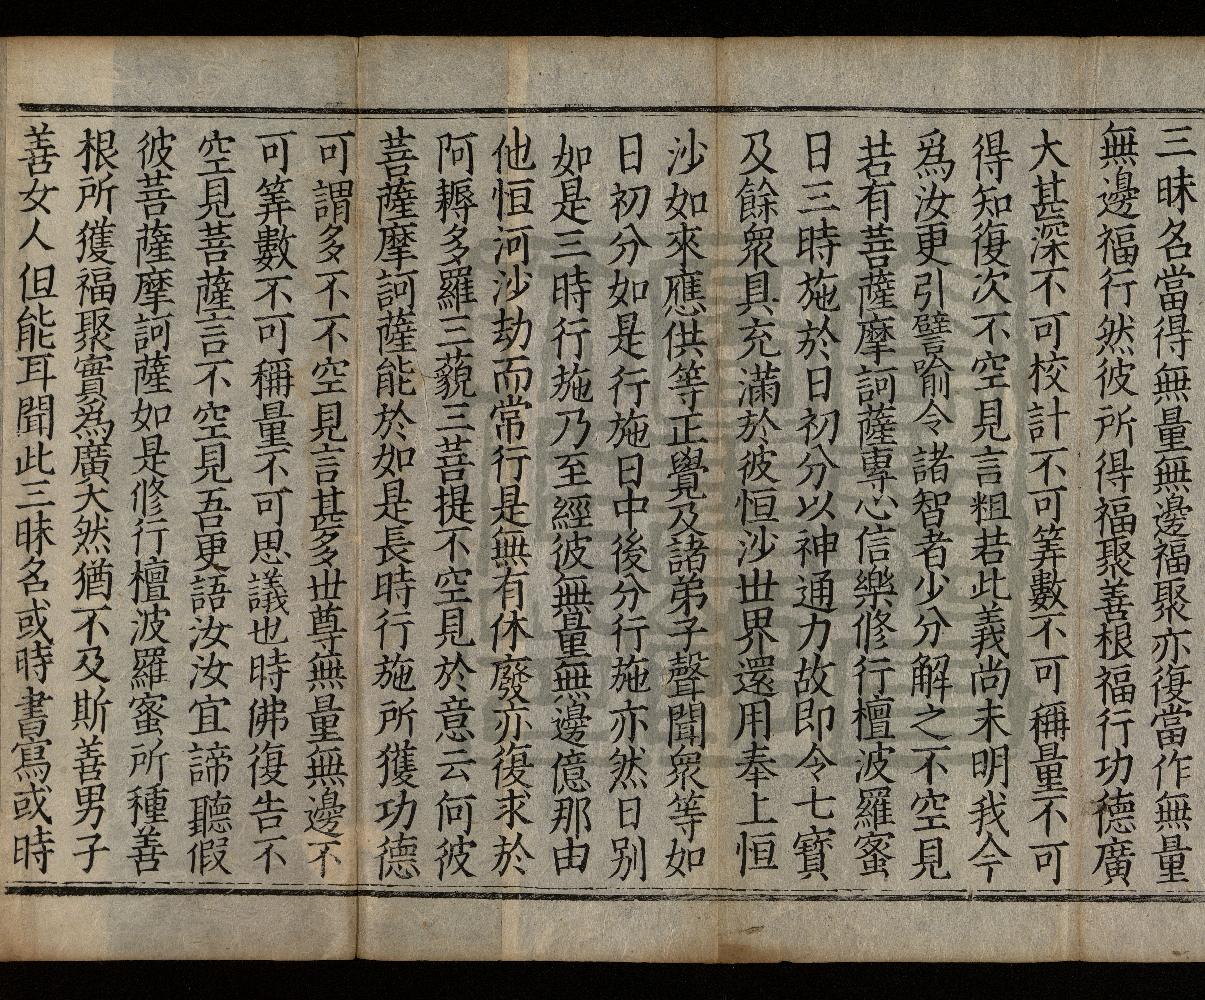 三昧名當得無量無邊福聚亦復當作無量
無邊福行然彼所得福聚善根福行功德廣
大甚深不可校計不可筭數不可稱量不可
得知復次不空見言粗若此義尚未明我今
爲汝更引譬喻令諸智者少分解之不空見
若有菩薩摩訶薩專心信樂修行檀波羅蜜
日三時施於日初分以神通力故即令七寶
及餘衆具充滿於彼恒沙世界還用奉上恒
沙如來應供等正覺及諸弟子聲聞衆等如
日初分如是行施日中後分行施亦然日別
如是三時行施乃至經彼無量無邊億那由
他恒河沙劫而常行是無有休廢亦復求於
阿耨多羅三藐三菩提不空見於意云何彼
菩薩摩訶薩能於如是長時行施所獲功德
可謂多不不空見言甚多世尊無量無邊不
可筭數不可稱量不可思議也時佛復告不
空見菩薩言不空見吾更語汝汝宜諦聽假
彼菩薩摩訶薩如是修行檀波羅蜜所種善
根所獲福聚實爲廣大然猶不及斯善男子
善女人但能耳聞此三昧名或時書寫或時